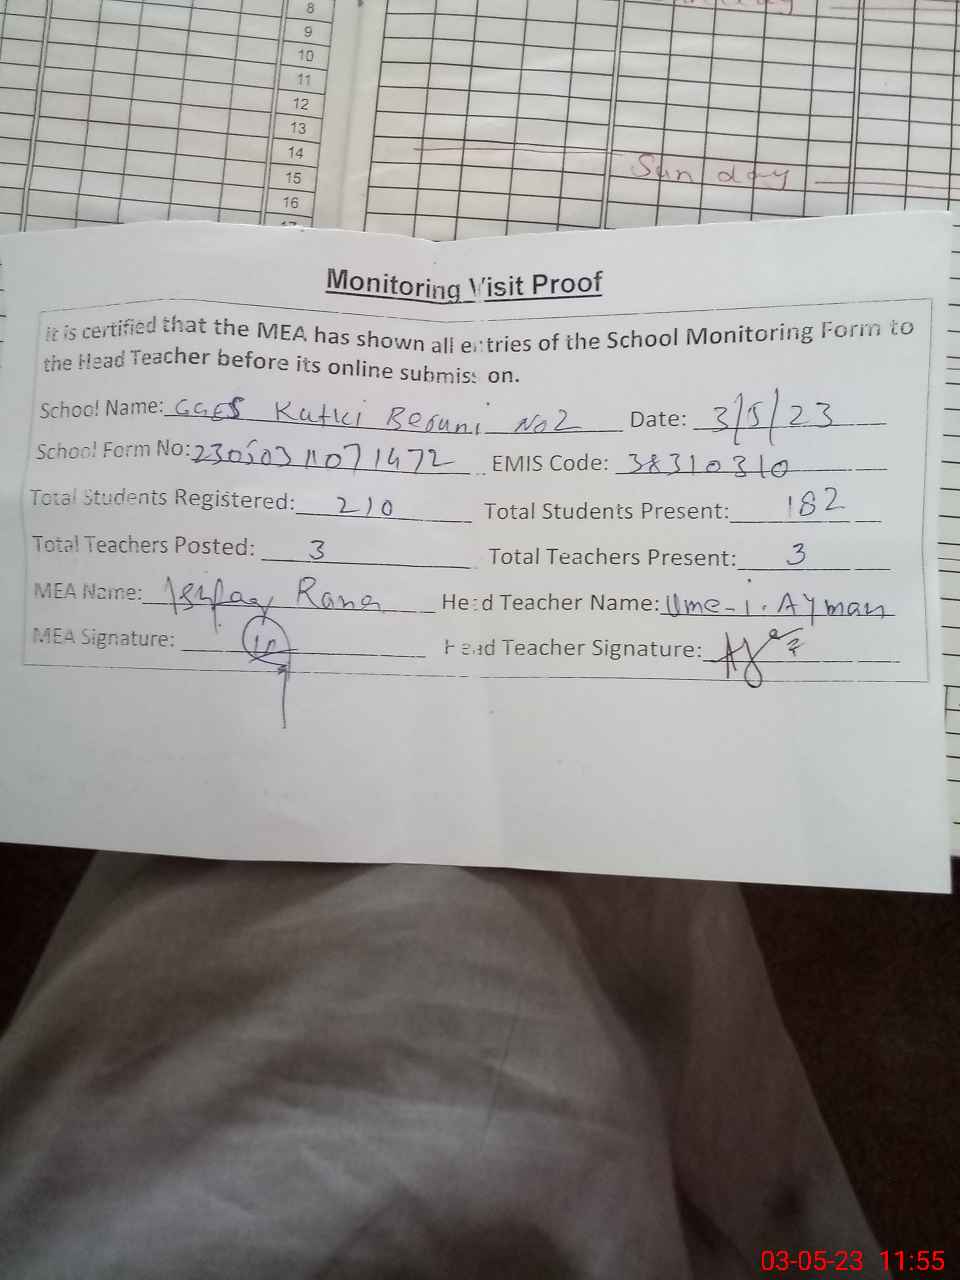 8
9
10
11
12
13
14
15
16
Sunday
Monitoring Visit Proof
It is certified that the MEA has shown all entries of the School Monitoring Form to
the Head Teacher before its online submission.
School Name: GGES No 2 Date: 3/5/23
School Form No: EMIS Code: 38310310
Total Students Registered: 210 Total Students Present: 182
Total Teachers Posted: 3 Total Teachers Present: 3
MEA Name: Ishfaq Rana Head Teacher Name: Ume-i-Ayman
MEA Signature: Head Teacher Signature:
03-05-23 11:55